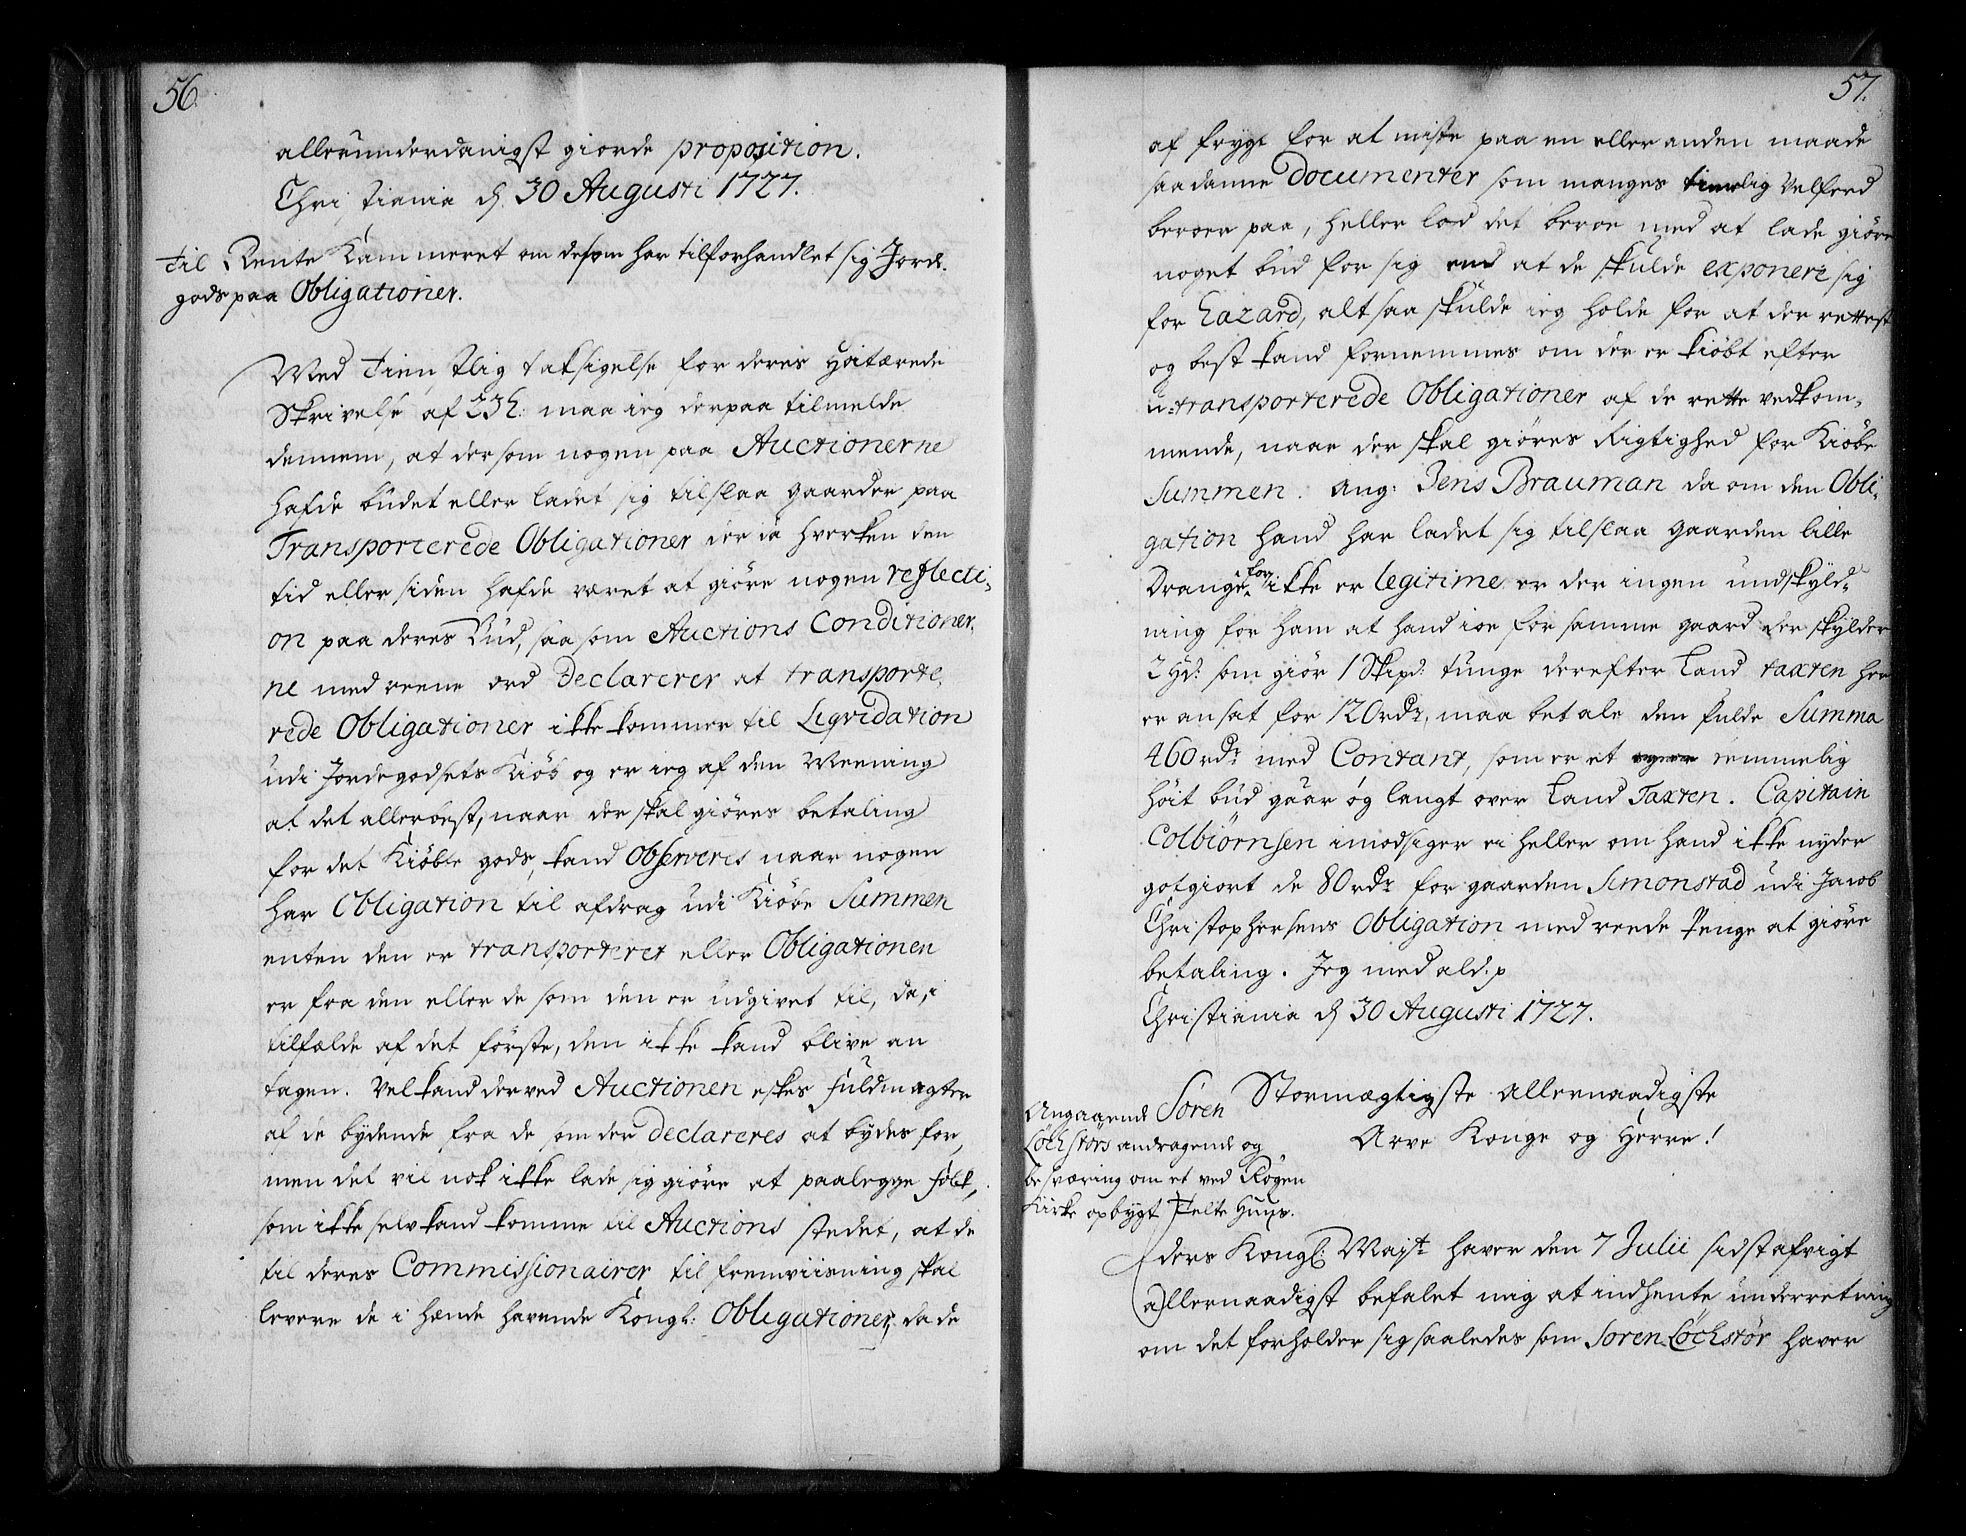 56.
allerunderdanigst giorde proposition.
Christiania d. 30 Augusti 1727.
til Rente Kammeret om de som har tilforhandlet sig Jorde-
gods paa Obligationer.
Med Tienstlig taksigelse for deris Høitærede
Skrivelse af 23h: maa ieg derpaa tilmelde
dennem, at dersom nogen paa Auctionerne
hafde budet eller ladet sig tilslaa gaarder paa
Transporterede Obligationer der ia hverken den
tid eller siden hafde været at giøre nogen reflecti-
on paa deres Bud, saasom Auctions Conditioner-
ne med reene ord Declarerer at transporte-
rede Obligationer ikke kommer til Liqvidation
udi Jordegodsets Kiøb og er ieg af den Meening
at det allerbest, naar der skal giøres betaling
for det Kiøbte gods, kand Observeris naar nogen
har Obligation til afdrag udi Kiøbe Summen
enten den er transporteret eller Obligationen
er fra den eller de som den er udgivet til, da, i
tilfælde af det første, den ikke kand blive an
tagen. Vel kand der ved Auctionen eskes fuldmagter
af de bydende fra de som der declareres at bydes for,
men det vil nok ikke lade sig giøre at paalegge folk,
som ikke selv kand komme til Auctions stedet, at de
til deres Commissionairer til fremviisning skal
levere de i hænde havende Kongl: Obligationer, da de
57.
af frygt for at miste paa en eller anden maade
saadanne Documenter som manges timelig Velferd
beroer paa, heller lod det beroe med at lade giøre
noget bud for sig end at de skulde exponere sig
for Hazard, alt saa skulde ieg holde for at der rettest
og best kand fornemmes om der er kiøbt efter
u-transporterede Obligationer af de rette vedkom-
mende, naar der skal giøres Rigtighed for Kiøbe
Summen. Ang: Jens Brauman da om den Obli-
gation hand har ladet sig tilslaa gaarden lille
Drange for ikke er legitime er der ingen undskyld-
ning for ham at hand ioe for samme gaard der skylder
2 Hd: som giør 1 Skipd: tunge derefter Land taxten her
er ansat for 120 rdr, maa betale den fulde Summa
460 rdr med Contant, som er et temmelig
høit bud gaar og langt over Land Taxten. Capitain
Colbiørnsen imodsiger ei heller om hand ikke nyder
gotgiort de 80 rdr for gaarden Simonstad udi Jacob
Christophersens Obligation med reede Penge at giøre
betaling. Jeg med ald. p
Christiania d. 30 Augusti 1727.
Stormægtigste Allernaadigste
Arve Konge og Herre!
Angaaende Søren
Løchstørs andragende og
besværing om et ved Røgen
Kirke opbygt Telte Huus.
ders Kongl: Mayst: haver den 7 Julii sidst afvigt
allernaadigst befalet mig at indhente underretning
om det forholder sig saaledes som Soren Løchstør haver